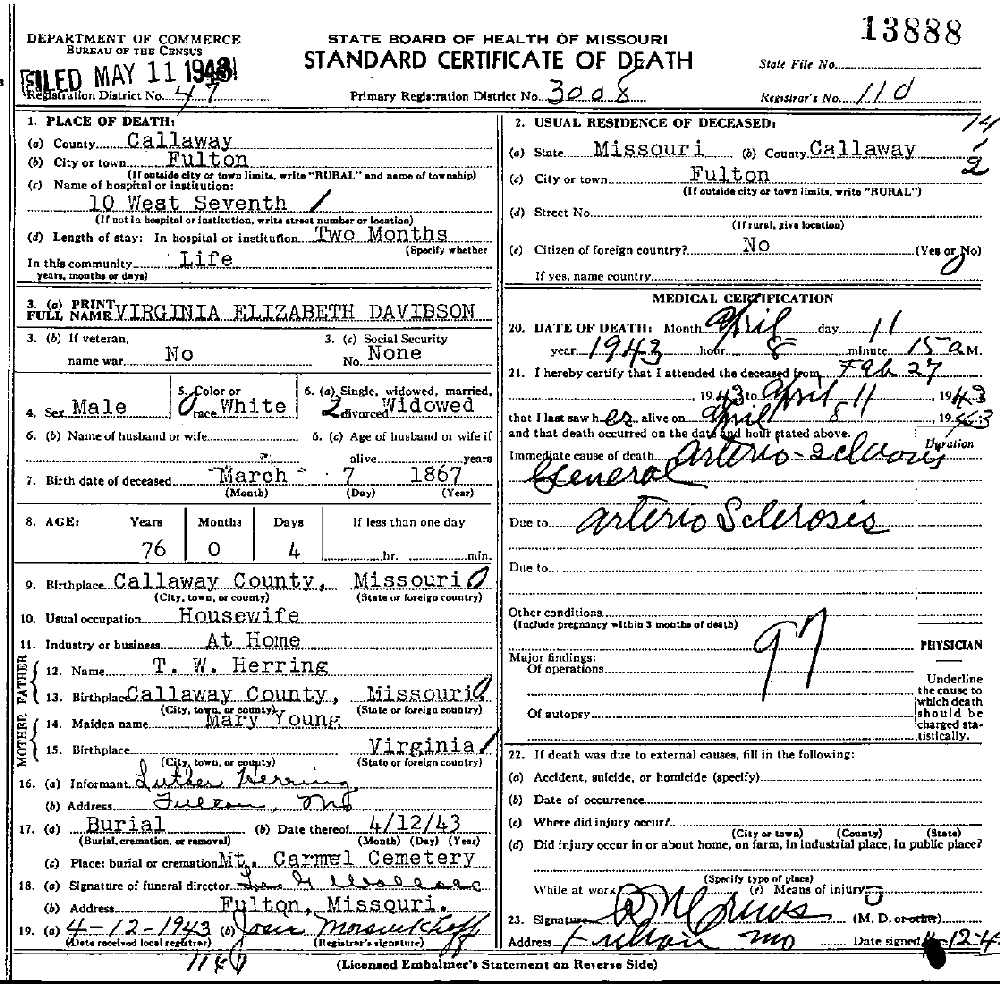 13888
DEPARTMENT OF COMMERCE
BUREAU OF THE CENSUS
STATE BOARD OF HEALTH OF MISSOURI
STANDARD CERTIFICATE OF DEATH
FILED MAY 11 1943
State File No.
Registration District No. 47
Primary Registration District No. 3008
Registrar's No. 110
1. PLACE OF DEATH:
(a) County Callaway
(b) City or town Fulton
(If outside city or town limits, write "RURAL" and name of township)
(c) Name of hospital or institution:
10 West Seventh /
(If not in hospital or institution, write street number or location)
(d) Length of stay: In hospital or institution Two Months
(Specify whether
In this community Life
years, months or days)
2. USUAL RESIDENCE OF DECEASED: 14
(a) State Missouri (b) County Callaway 2
(c) City or town Fulton
(If outside city or town limits, write "RURAL")
(d) Street No.
(If rural, give location)
(e) Citizen of foreign country? No (Yes or No)
If yes, name country
3. (a) PRINT FULL NAME VIRGINIA ELIZABETH DAVIDSON
3. (b) If veteran, name war No
3. (c) Social Security No. None
4. Sex Male
5. Color or race White
6. (a) Single, widowed, married, divorced Widowed
6. (b) Name of husband or wife
6. (c) Age of husband or wife if alive years
7. Birth date of deceased March 7 1867
(Month) (Day) (Year)
8. AGE: Years Months Days If less than one day
76 0 4 hr. min.
9. Birthplace Callaway County, Missouri 0
(City, town, or county) (State or foreign country)
10. Usual occupation Housewife
11. Industry or business At Home
FATHER
12. Name T. W. Herring
13. Birthplace Callaway County, Missouri 0
(City, town, or county) (State or foreign country)
MOTHER
14. Maiden name Mary Young
15. Birthplace Virginia /
(City, town, or county) (State or foreign country)
16. (a) Informant Luther Herring
(b) Address Fulton, Mo
17. (a) Burial (b) Date thereof 4/12/43
(Burial, cremation, or removal) (Month) (Day) (Year)
(c) Place: burial or cremation Mt. Carmel Cemetery
18. (a) Signature of funeral director
(b) Address Fulton, Missouri.
19. (a) 4-12-1943 (b) Josie
(Date received local registrar) (Registrar's signature)
MEDICAL CERTIFICATION
20. DATE OF DEATH: Month April day 11
year 1943 hour 8 minute 15 a M.
21. I hereby certify that I attended the deceased from Feb 27
1943 to April 11 1943
that I last saw her alive on April 8 1943
and that death occurred on the date and hour stated above.
Duration
Immediate cause of death arterio-sclerosis
General
Due to arterio Sclerosis
Due to
Other conditions
(Include pregnancy within 3 months of death)
97
Major findings:
Of operations
Of autopsy
PHYSICIAN
Underline the cause to which death should be charged statistically.
22. If death was due to external causes, fill in the following:
(a) Accident, suicide, or homicide (specify)
(b) Date of occurrence
(c) Where did injury occur?
(City or town) (County) (State)
(d) Did injury occur in or about home, on farm, in industrial place, in public place?
(Specify type of place)
While at work (e) Means of injury
23. Signature (M. D. or other)
Address Fulton Mo Date signed 4-12-4
(Licensed Embalmer's Statement on Reverse Side)